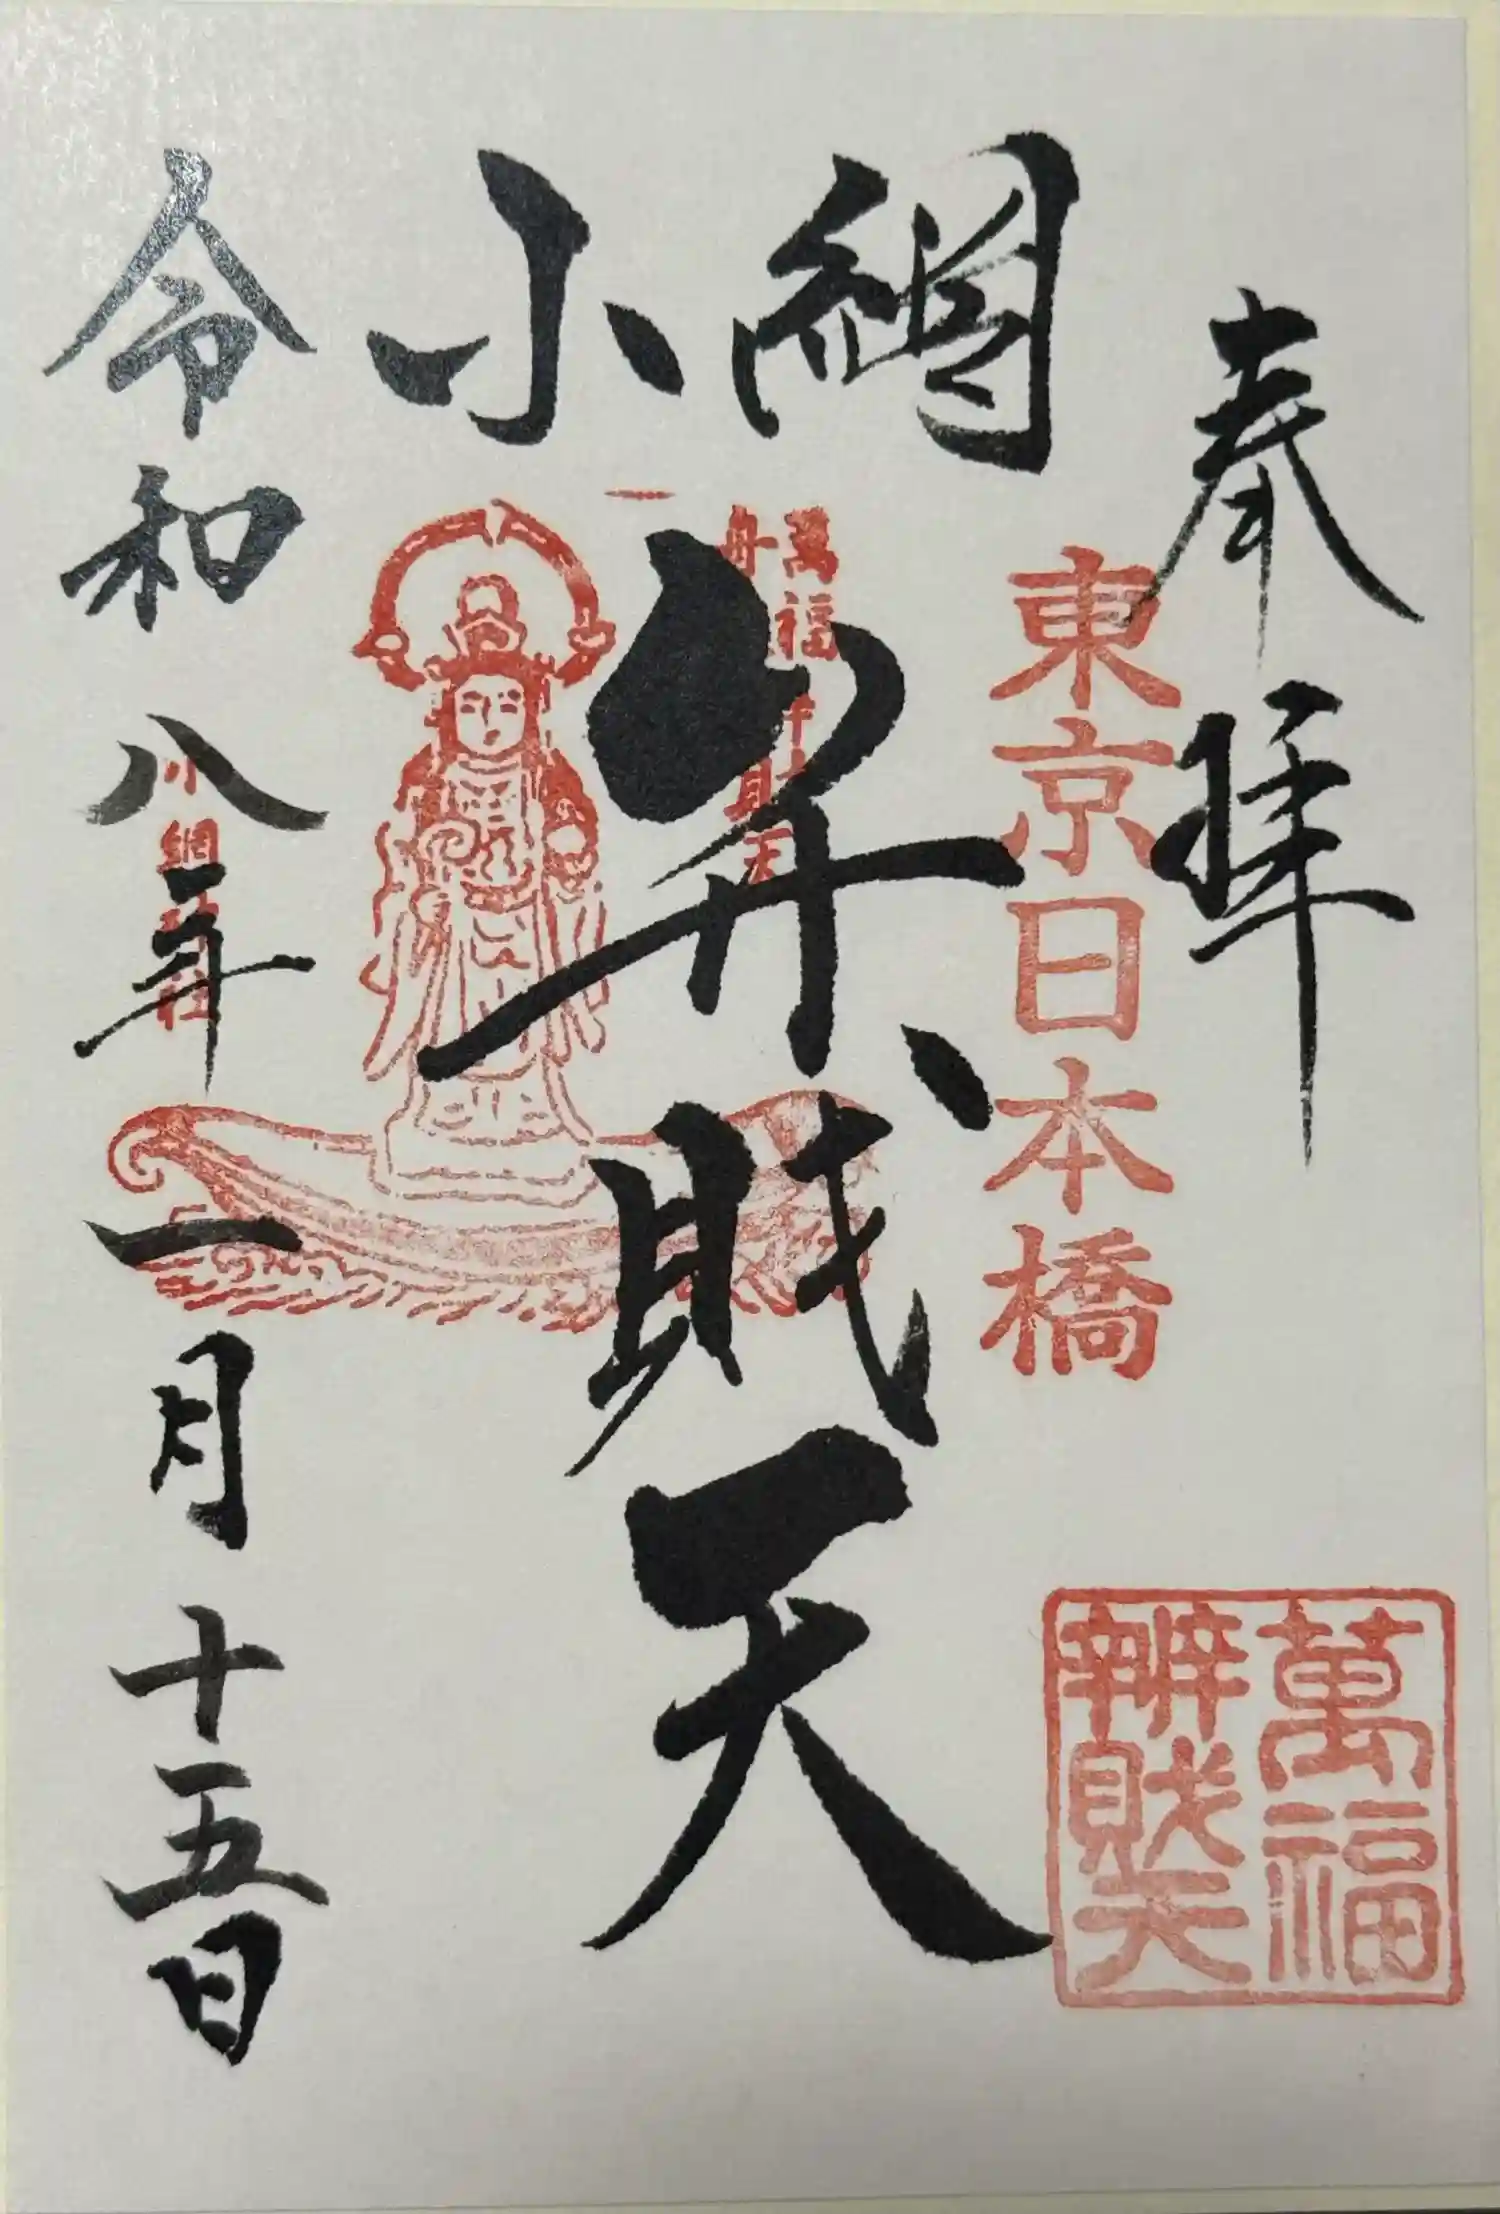 奉拝
東京日本橋
萬福
辨財天
小網
弁財天
萬福
舟
小網
令和八年一月十五日